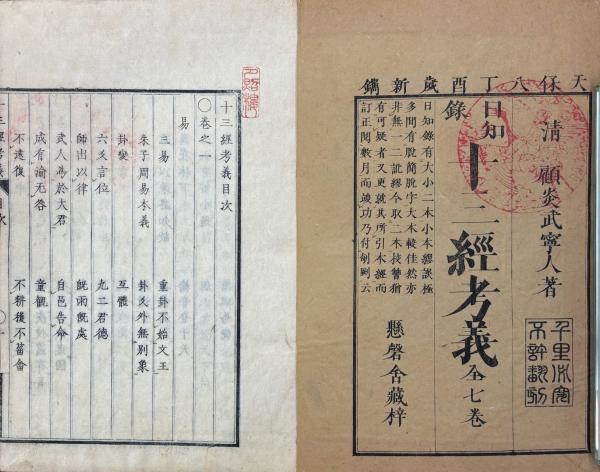 天保八丁酉歲新鐫
清 顧炎武寧人著
千里必究
不許翻刻
日知錄
十三經考義 全七卷
日知錄有大小二本小本經誤極
多間有脫簡脫字大本較佳然亦
非無一二訛繆今取二本校讐猶
有可疑者又更就其所引本經而
訂正閱數月而竣功乃付剞劂云
懸磬舍藏梓
十三經考義目次
○卷之一
易
三易 重卦不始文王
朱子周易本義 卦爻外無別象
卦變 互體
六爻言位 九二君德
師出以律 既雨既處
武人爲於大君 自邑告命
成有渝无咎 童觀
不遠復 不耕穫不菑畬
十三經考義 目次